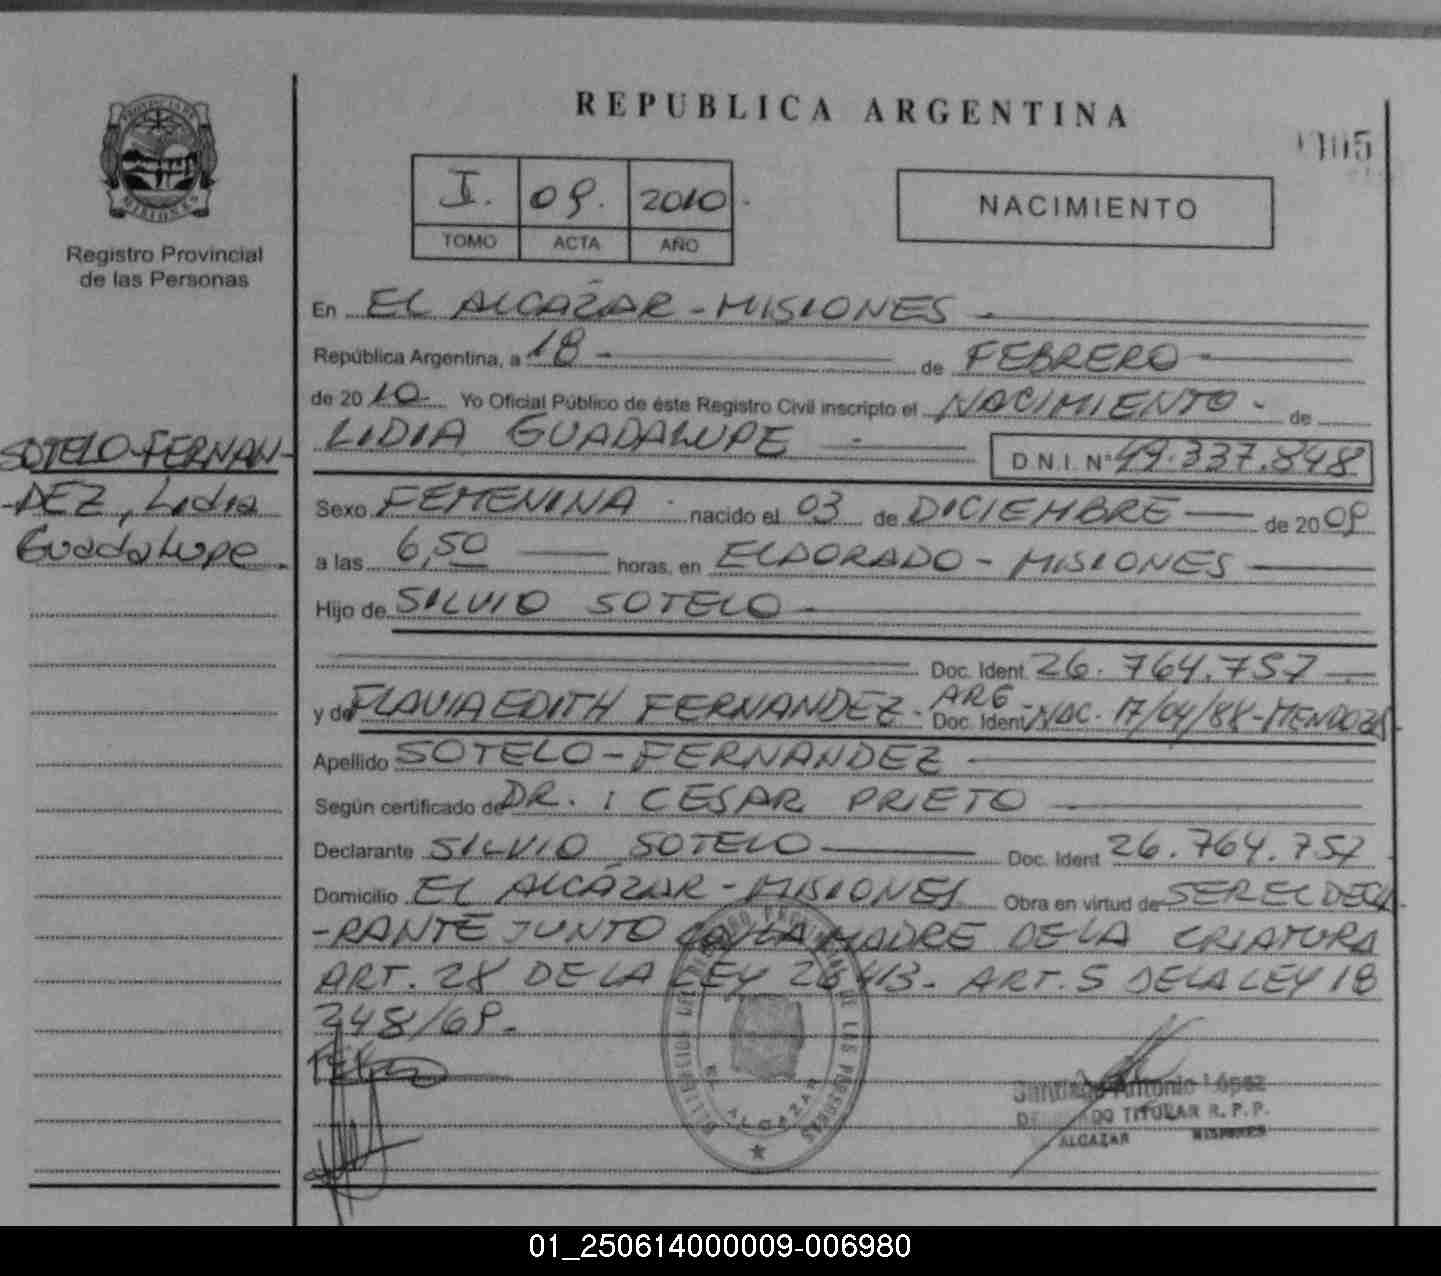 REPUBLICA ARGENTINA
1105
PROVINCIA DE
MISIONES
Registro Provincial
de las Personas
I. 09. 2010
TOMO ACTA AÑO
NACIMIENTO
En EL ALCAZAR - MISIONES
República Argentina, a 18 - de FEBRERO
de 2010 Yo Oficial Público de éste Registro Civil inscripto el NACIMIENTO - de
LIDIA GUADALUPE - D.N.I. Nº 49.337.848
SOTELO-FERNAN-
-DEZ, Lidia
Guadalupe
Sexo FEMENINA nacido el 03 de DICIEMBRE de 2009
a las 6,50 horas, en ELDORADO - MISIONES
Hijo de SILVIO SOTELO
Doc. Ident. 26.764.757
y de FLAVIA EDITH FERNANDEZ - ARG -
Doc. Ident NAC. 17/04/88-MENDOZA
Apellido SOTELO-FERNANDEZ
Según certificado de DR. : CESAR PRIETO
Declarante SILVIO SOTELO Doc. Ident 26.764.757
Domicilio EL ALCAZAR - MISIONES Obra en virtud de SER EL DECLA
-RANTE JUNTO CON LA MADRE DE LA CRIATURA
ART. 28 DE LA LEY 26413. ART. 5 DE LA LEY 18
248/69.
EL ALCAZAR
Santiago Antonio López
TITULAR R. P. P.
ALCAZAR MISIONES
01_250614000009-006980